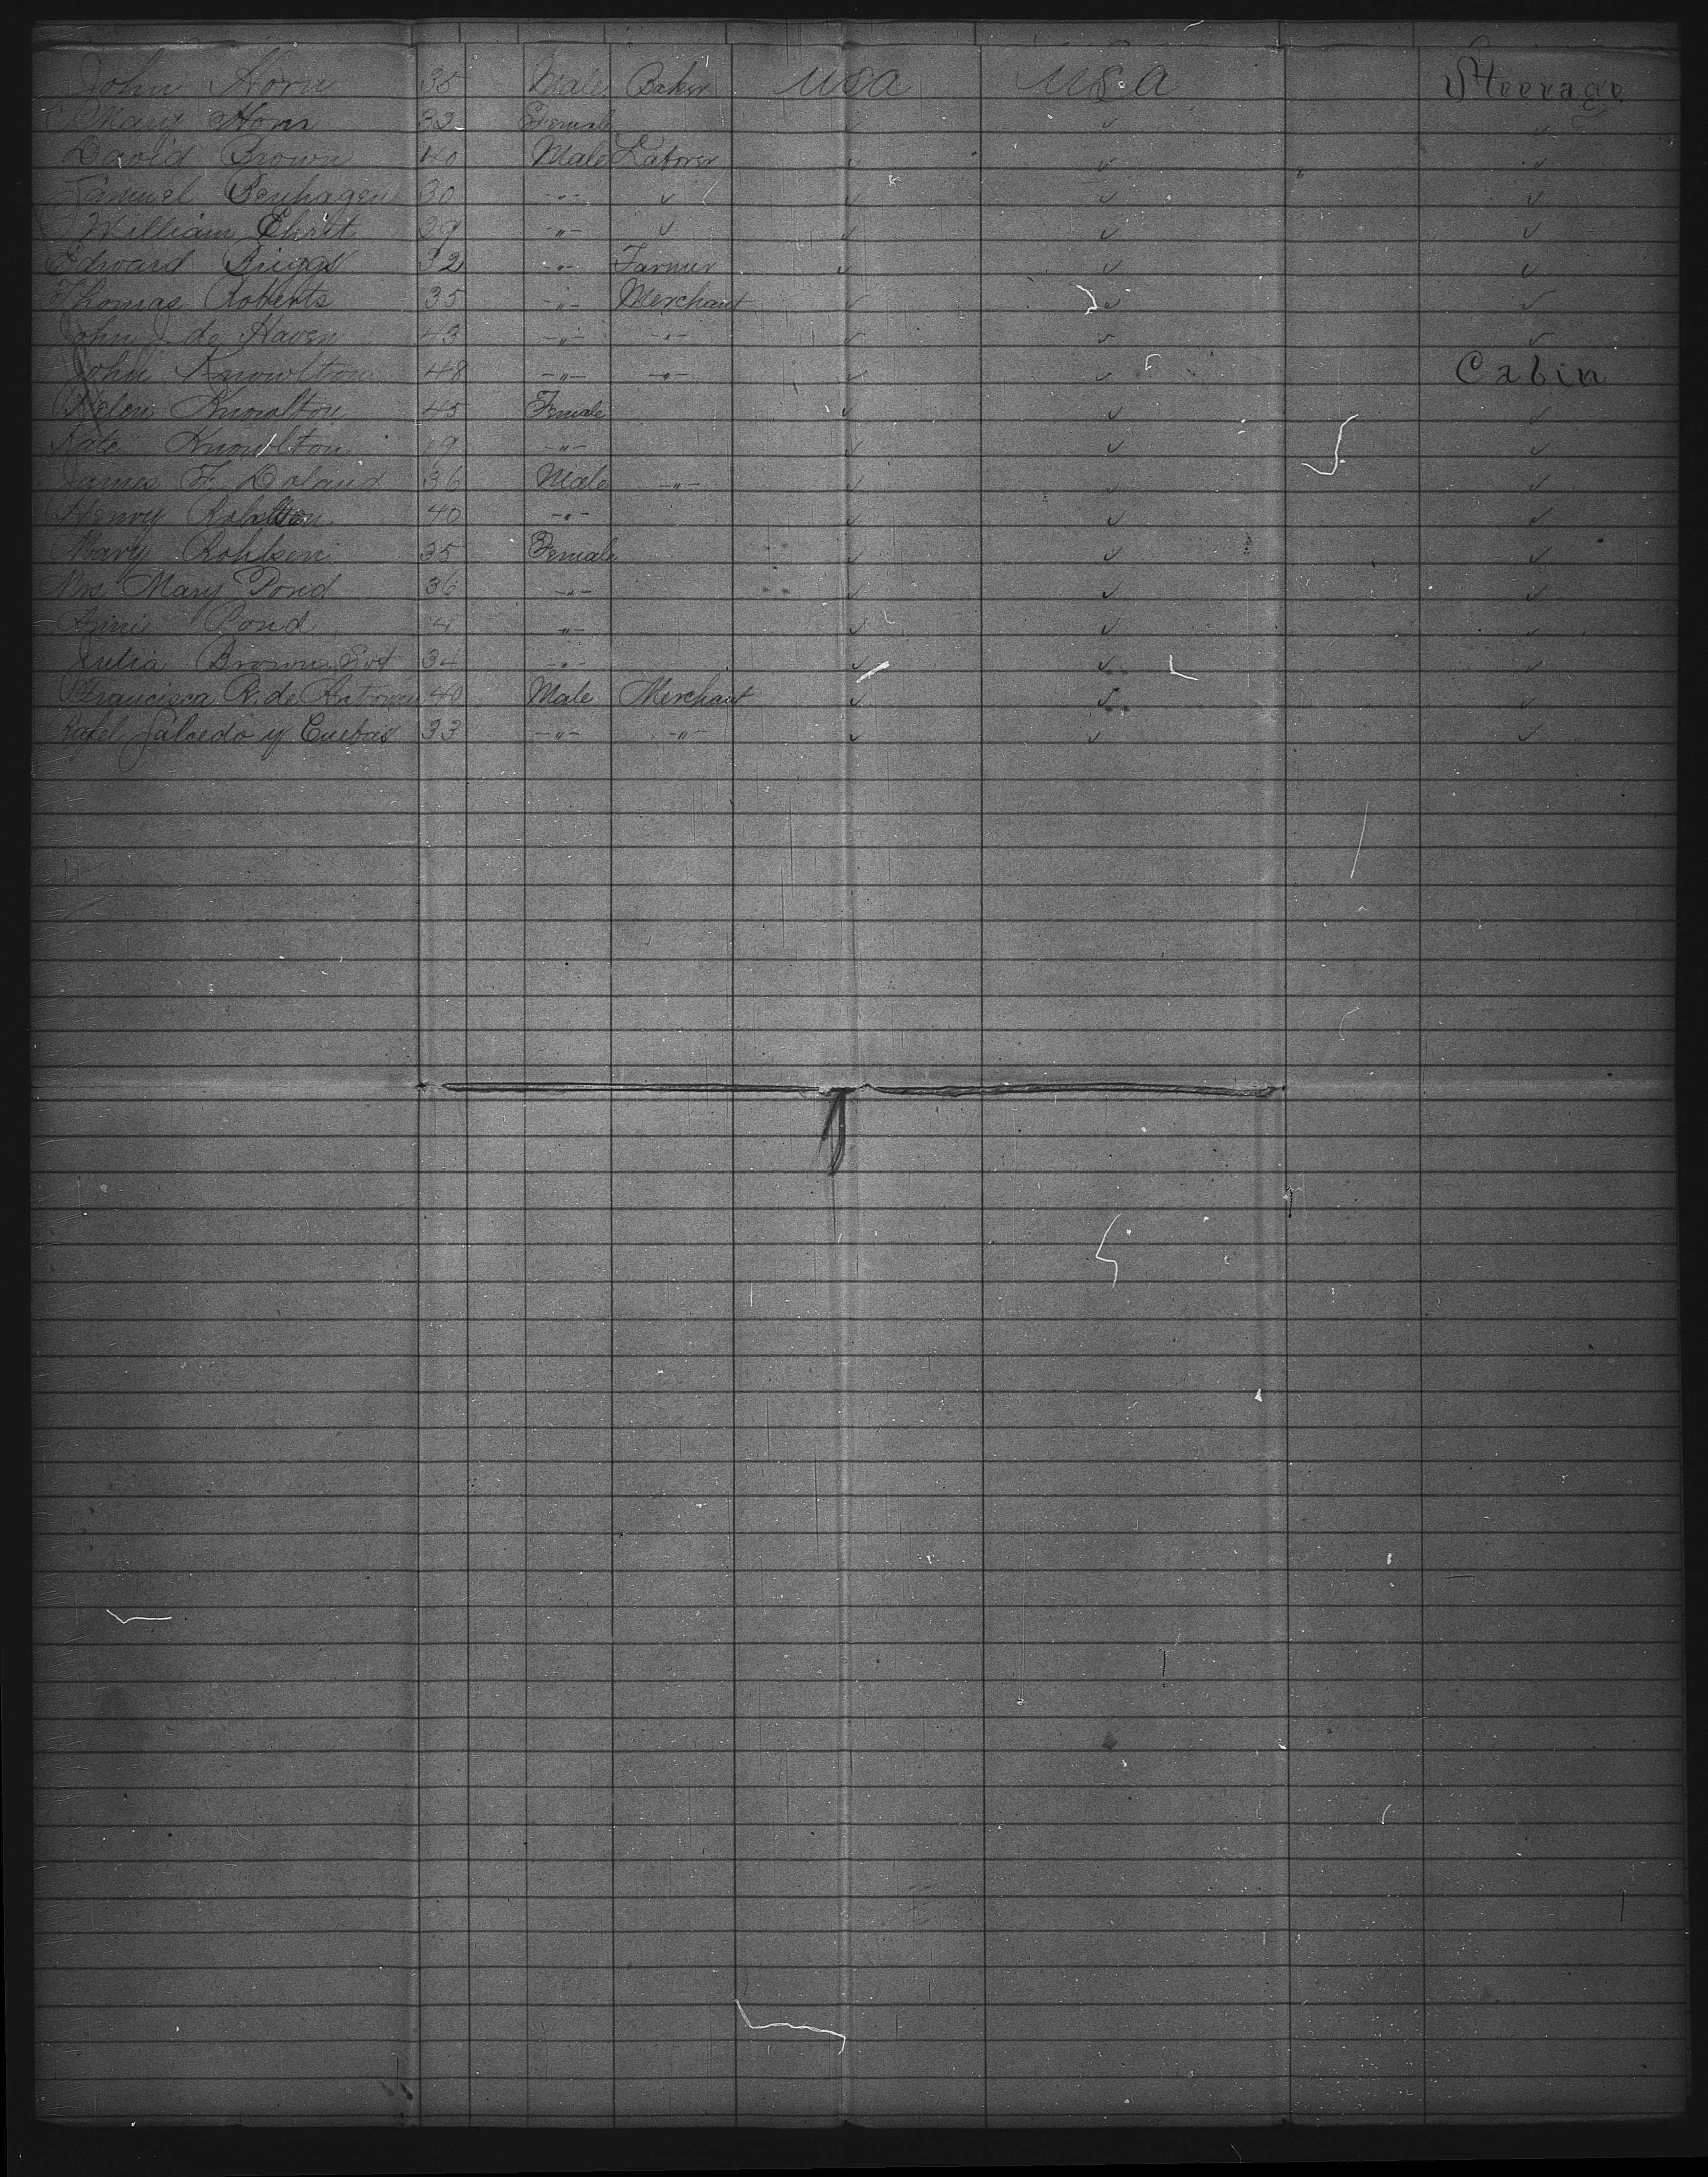 John Horn 35 Male Baker USA USA Steerage
Mary Horn 32 Female ✓ ✓ ✓
David Brown 40 Male Laborer ✓ ✓ " ✓
Samuel Benhagen 30 -"- ✓ ✓ ✓ ✓
William 29 -"- ✓ ✓ ✓ ✓
Edward Briggs 32 -"- Farmer ✓ ✓ ✓
Thomas Roberts 35 -"- Merchant ✓ ✓ ✓
John J. de Haven 43 -"- -"- ✓ ✓ ✓
John Knowlton 48 -"- -"- ✓ ✓ Cabin
Helen Knowlton 45 Female ✓ ✓ ✓
Kate Knowlton 19 -"- ✓ ✓ ✓
James F. Doland 36 Male -"- ✓ ✓ ✓
Henry 40 -"- ✓ ✓ ✓
Mary Rohlsen 35 Female ✓ ✓ ✓
Mrs Mary Pond 36 -"- ✓ ✓ ✓
Annie Pond 4 -"- ✓ ✓ ✓
Julia Brown 34 -"- ✓ ✓ ✓
Francisca R. de 40 Male Merchant ✓ ✓ ✓
Rafel Salcedo y Cuebas 33 -"- -"- ✓ ✓ ✓